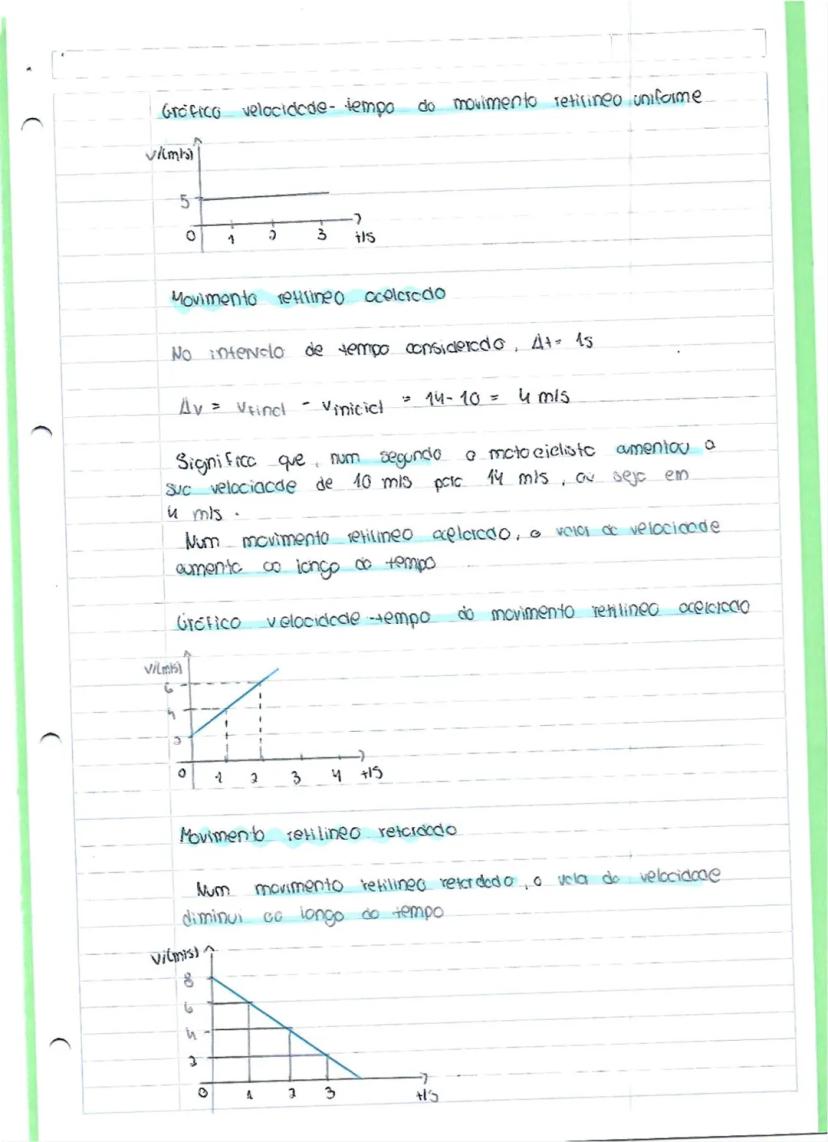 Gráfico velocidade-tempo do movimento retilíneo uniforme
v/(m/s)
5
0 1 2 3 t/s
Movimento retilíneo acelerado
No intervalo de tempo considerado, Δt = 1s
Δv = vfinal - vinicial = 14 - 10 = 4 m/s
Significa que, num segundo o motociclista amentou a
sua velociacde de 10 m/s para 14 m/s, ou seja em
4 m/s.
Num movimento retilíneo acelarado, o valor da velocidade
aumenta ao longo do tempo
Gráfico velocidade-tempo do movimento retilíneo acelerado
v/(m/s)
6
4
2
0 1 2 3 4 t/s
Movimento retilíneo retardado
Num movimento retilíneo retardado, o valor da velocidade
diminui ao longo do tempo
v/(m/s)
8
6
4
2
0 1 2 3 t/s